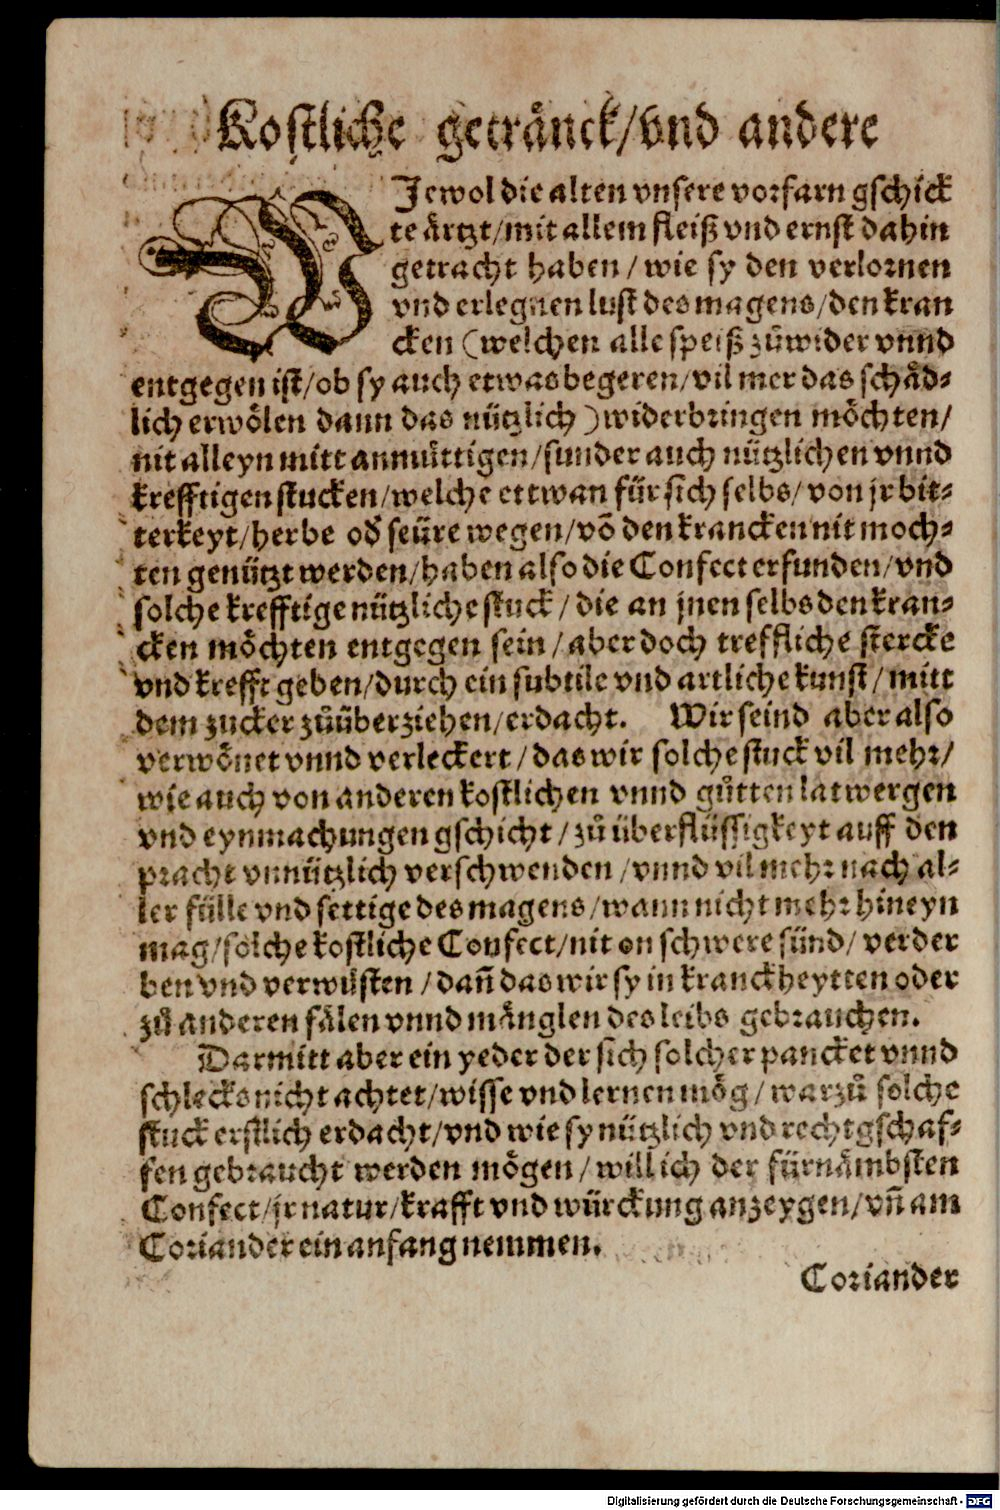 Kostliche getraͤnck/vnd andere
WJewol die alten vnsere vorfarn gschick
te aͤrtzt/mit allem fleiß vnd ernst dahin
getracht haben/wie sy den verlornen
vnd erlegnen lust des magens/den kran
cken (welchen alle speiß zůwider vnnd
entgegen ist/ob sy auch etwas begeren/vil mer das schaͤd-
lich erwoͤlen dann das nützlich) widerbringen moͤchten/
nit alleyn mitt anmuͤttigen/sunder auch nützlichen vnnd
krefftigen stucken/welche ettwan für sich selbs/von jr bit-
terkeyt/herbe od̃ seüre wegen/võ den krancken nit moch-
ten genützt werden/haben also die Confect erfunden/vnd
solche krefftige nützliche stuck/die an jnen selbs den kran-
cken moͤchten entgegen sein/aber doch treffliche stercke
vnd krefft geben/durch ein subtile vnd artliche kunst/mitt
dem zucker zůüberziehen/erdacht. Wir seind aber also
verwoͤnet vnnd verleckert/das wir solche stuck vil mehr/
wie auch von anderen kostlichen vnnd gůtten latwergen
vnd eynmachungen gschicht/zů überflüssigkeyt auff den
pracht vnnützlich verschwenden/vnnd vil mehr nach al-
ler fülle vnd settige des magens/wann nicht mehr hineyn
mag/solche kostliche Confect/nit on schwere sünd/verder
ben vnd verwuͤsten/dañ das wir sy in kranckheytten oder
zů anderen faͤlen vnnd maͤnglen des leibs gebrauchen.
Darmitt aber ein yeder der sich solcher pancket vnnd
schlecks nicht achtet/wisse vnd lernen moͤg/warzů solche
stuck erstlich erdacht/vnd wie sy nützlich vnd recht gschaf-
fen gebraucht werden moͤgen/will ich der fürnaͤmbsten
Confect/jr natur/krafft vnd würckung anzeygen/vñ am
Coriander ein anfang nemmen.
Coriander
Digitalisierung gefördert durch die Deutsche Forschungsgemeinschaft - DFG